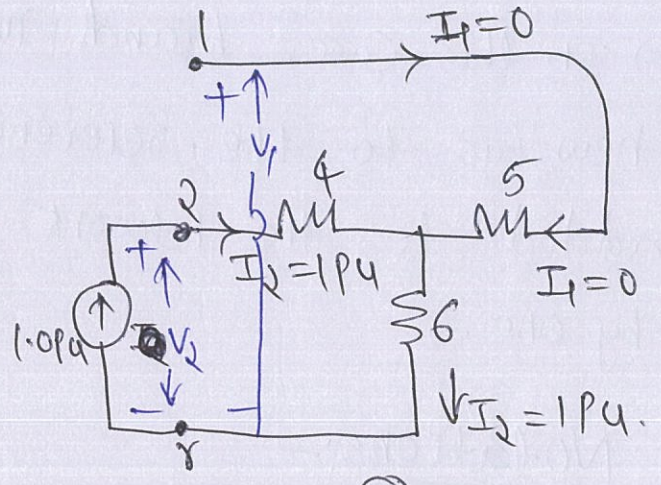 1
I₁=0
+
V₁
2
4
5
+
I₂=1PU
I₁=0
1.0PU
V₂
6
I₂=1PU.
r